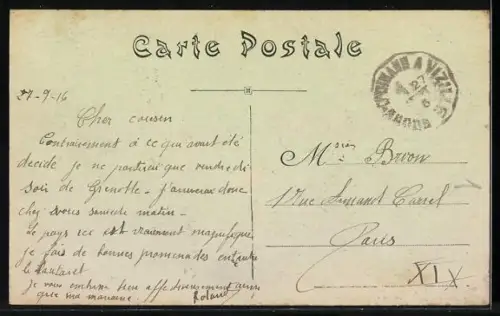 Carte Postale
27-9-16
Cher cousin
Contrairement à ce qui avait été
décidé je ne partirai que vendredi
soir de Grenoble - j'arriverai donc
chez vous samedi matin -
Le pays ici est vraiment magnifique
je fais de bonnes promenades
le Lautaret
Je vous embrasse bien affectueusement ainsi
que ma marraine. Roland
Mr Bovon
1 Rue Armand Carrel
Paris
XIX